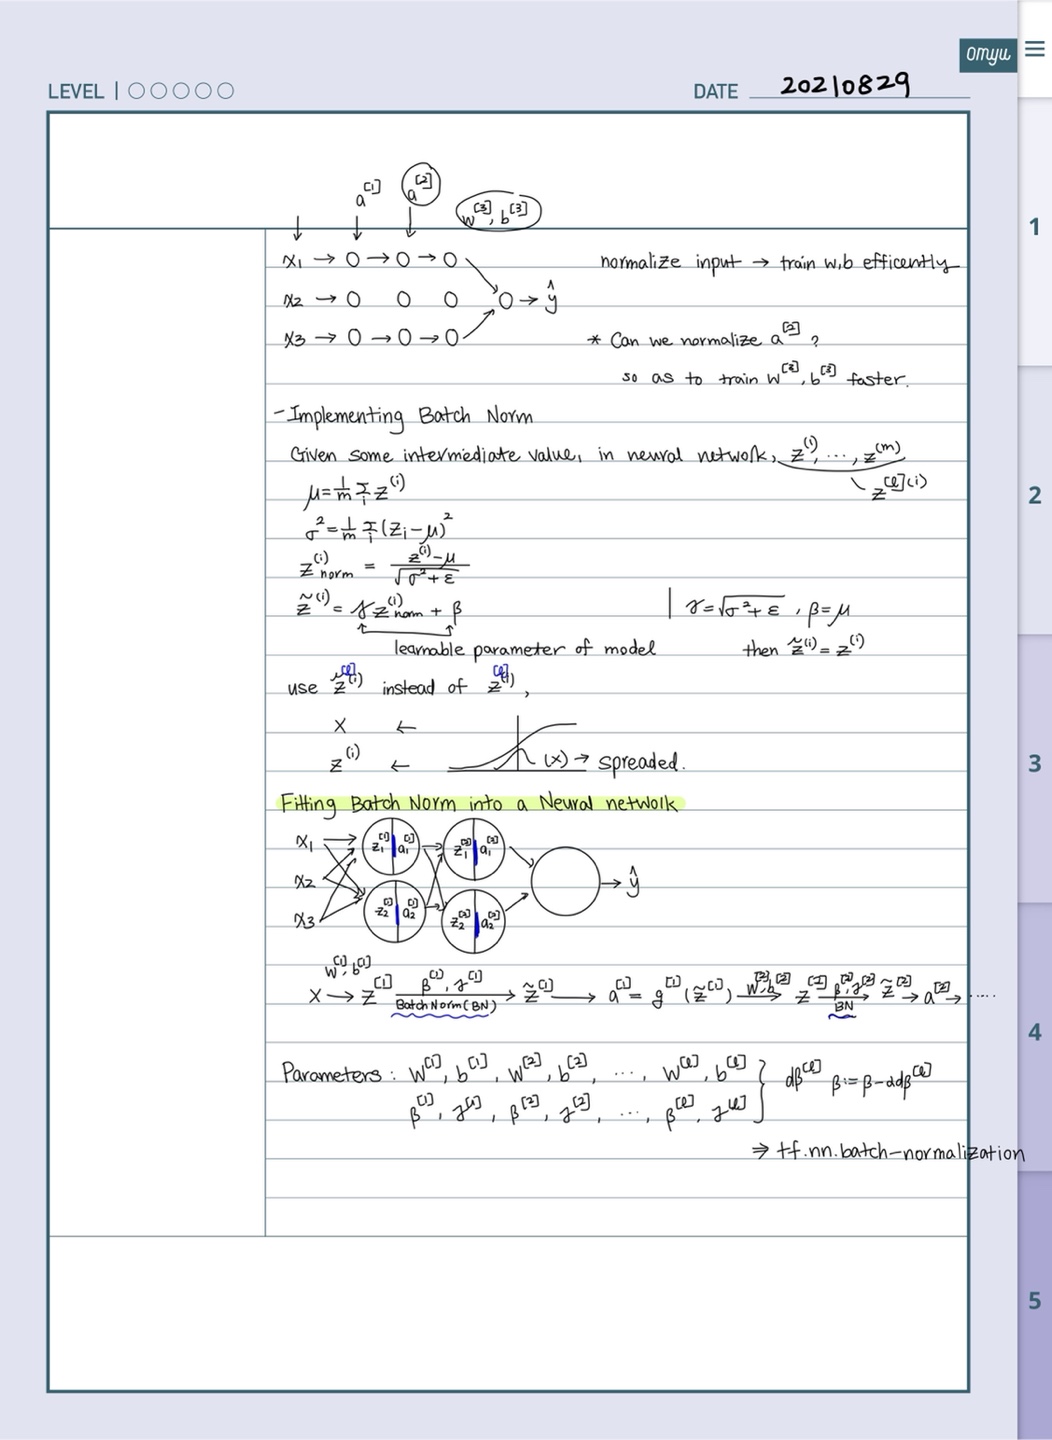 omyu
LEVEL | ○○○○○
DATE 20210829
a^[1] a^[2] w^[3], b^[3]
x1 → O → O → O
x2 → O O O O → ŷ
x3 → O → O → O
normalize input → train w,b efficently
* Can we normalize a^[2] ?
so as to train w^[3], b^[3] faster.
- Implementing Batch Norm
Given some intermediate value, in neural network, z^(i), ..., z^(m)
z^[l](i)
μ = 1/m Σ_i z^(i)
σ² = 1/m Σ_i (z_i - μ)²
z^(i)_norm = (z^(i) - μ) / √(σ² + ε)
z̃^(i) = γ z^(i)_norm + β
learnable parameter of model
γ = √(σ² + ε) , β = μ
then z̃^(i) = z^(i)
use z̃^[l](i) instead of z^[l](i),
X ←
z^(i) ← (x) → spreaded.
Fitting Batch Norm into a Neural network
x1 z1^[1] a1^[1] z1^[2] a1^[2]
x2 → ŷ
x3 z2^[1] a2^[1] z2^[2] a2^[2]
X → (w^[1], b^[1]) z^[1] → (β^[1], γ^[1] Batch Norm (BN)) z̃^[1] → a^[1] = g^[1](z̃^[1]) → (w^[2], b^[2]) z^[2] → (β^[2], γ^[2] BN) z̃^[2] → a^[2] → .....
Parameters : w^[1], b^[1], w^[2], b^[2], ..., w^[l], b^[l]
β^[1], γ^[1], β^[2], γ^[2], ..., β^[l], γ^[l]
dβ^[l] β := β - αdβ^[l]
⇒ tf.nn.batch-normalization
1
2
3
4
5